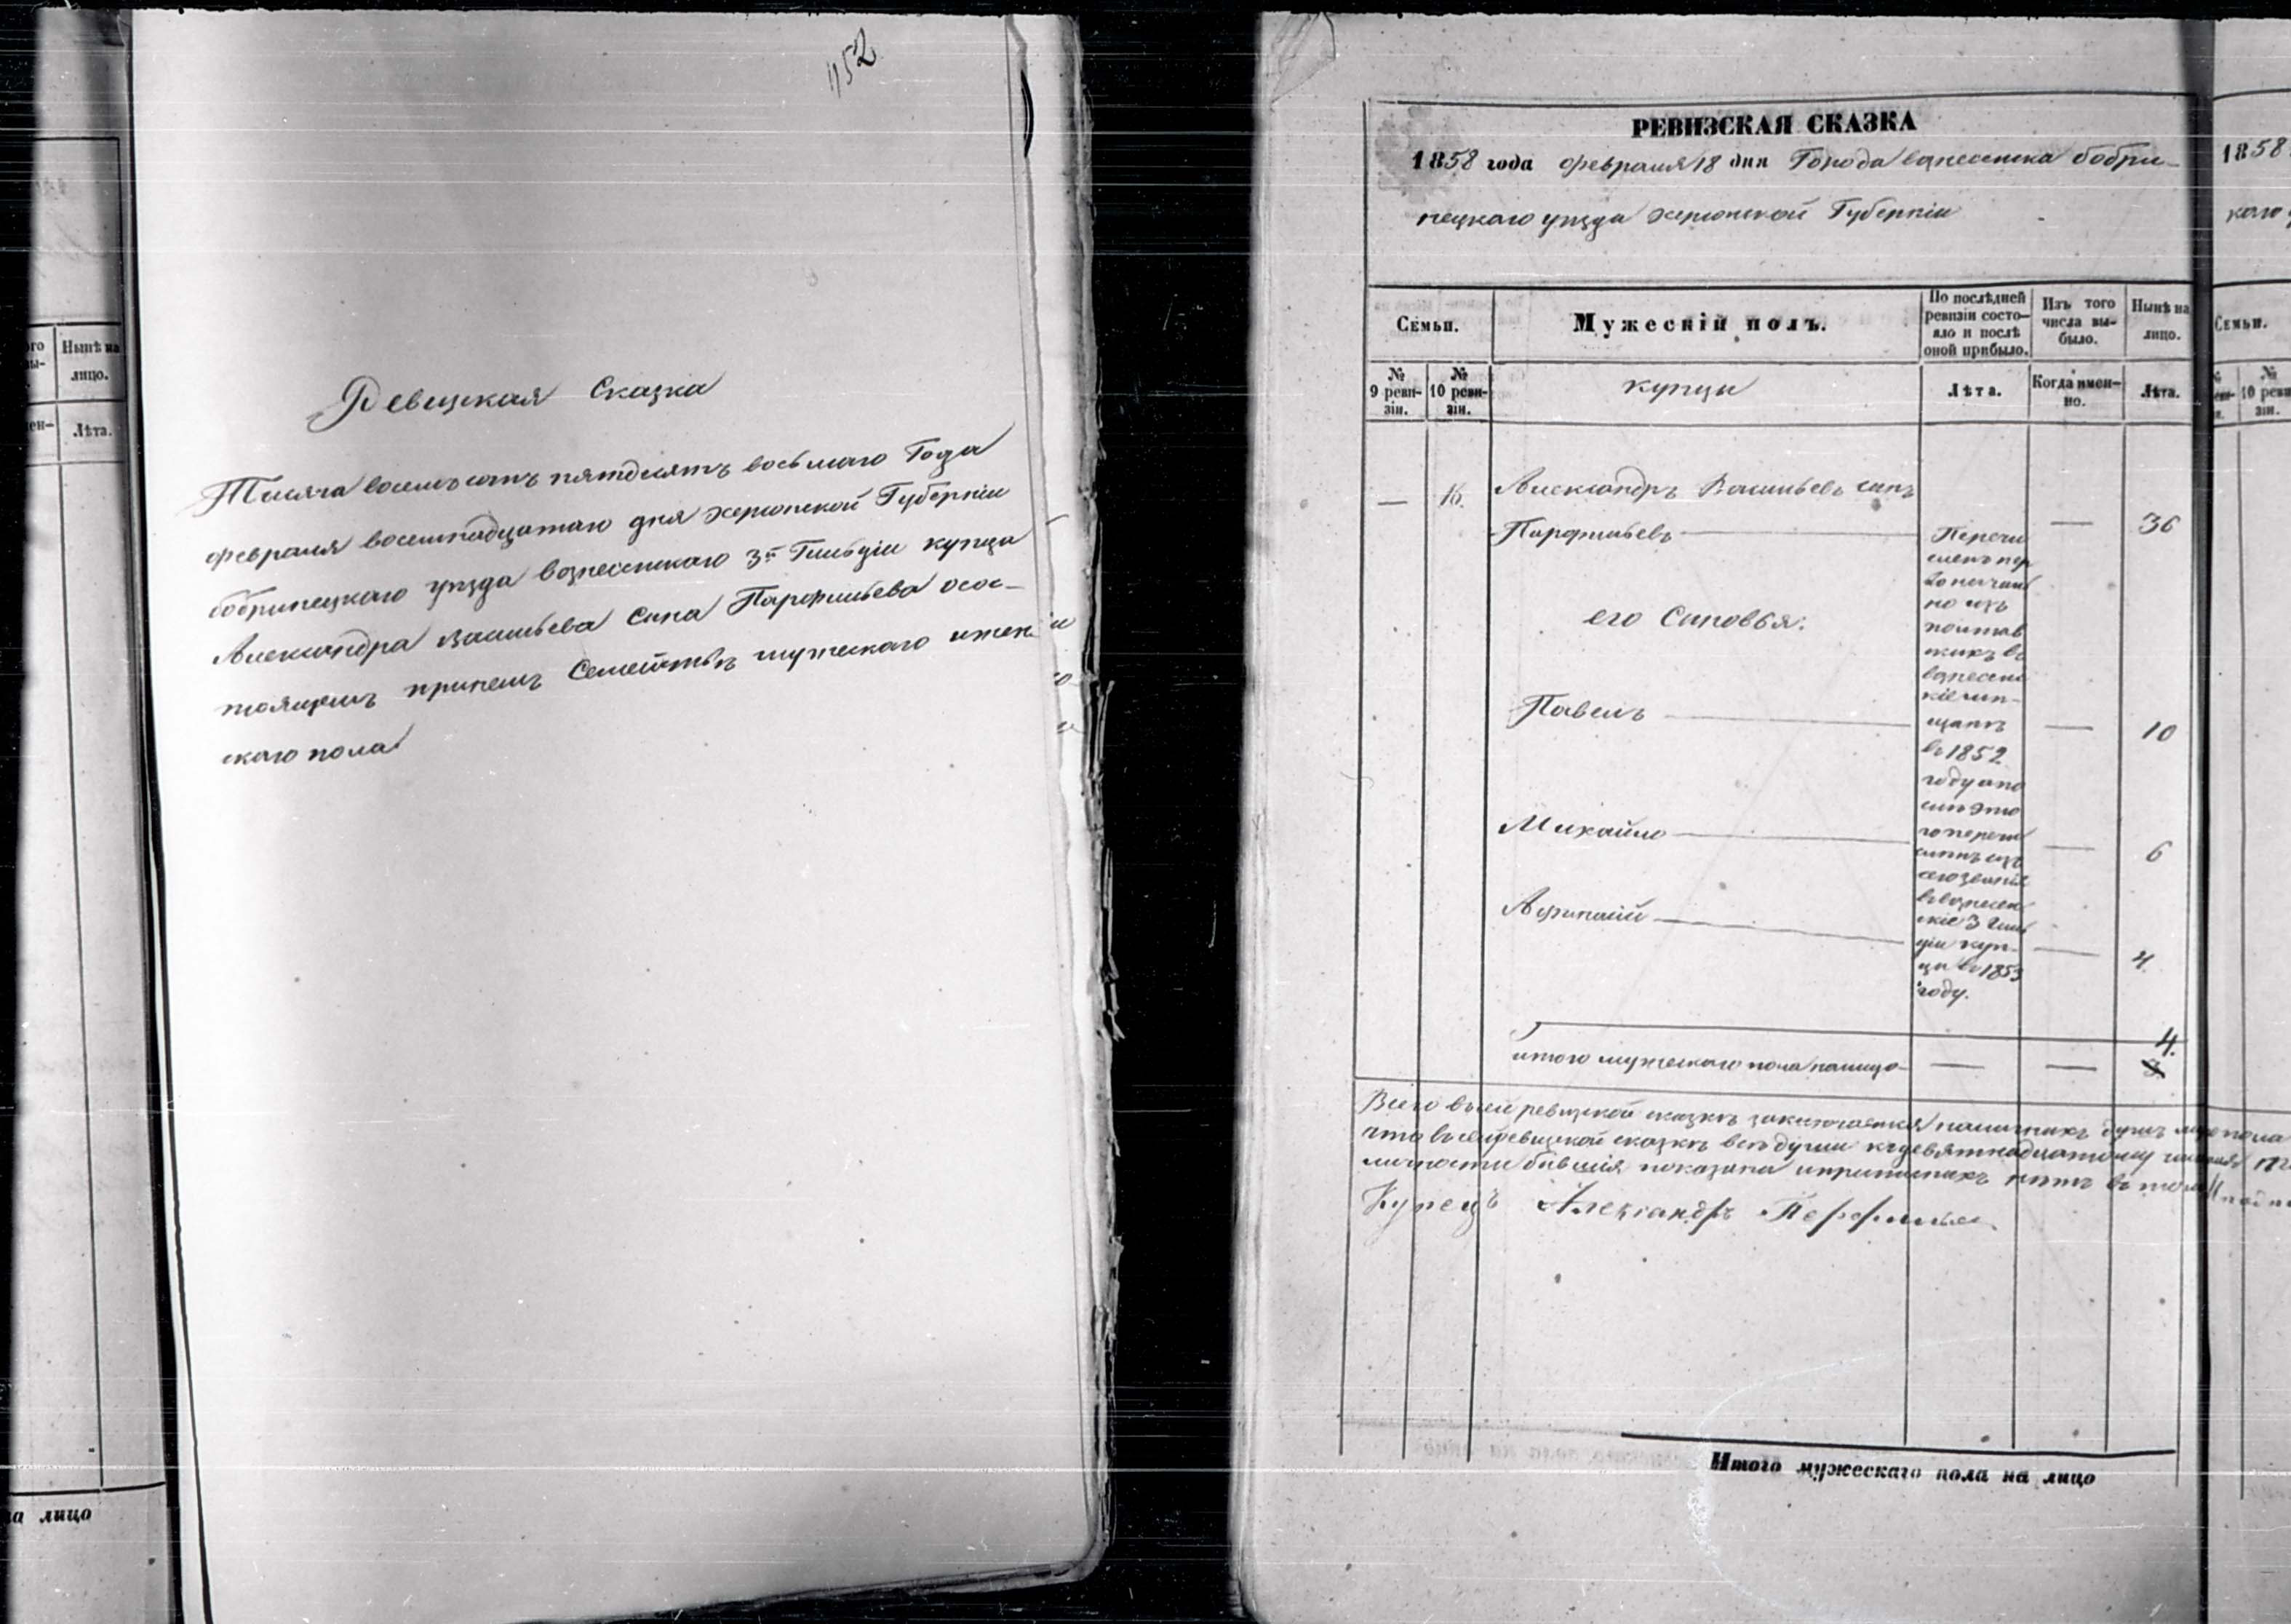 го
вы-
Нынѣ на
лицо.
мен-
Лѣта.
на лицо
152
Ревизкая Сказка
Тысяча восемъсотъ пятдесятъ восьмаго Года
февраля восемнадцатаго дня Херсонской Губерніи
бобринецкаго уѣзда вознесенскаго 3й Гильдіи купца
Александра Васильева Сына Парфильева осос-
тоящемъ принемъ Семействѣ мужескаго иженс
скаго пола
РЕВИЗСКАЯ СКАЗКА
1858 года февраля 18 дня Города вознесенска бобри-
нецкаго уѣзда херсонской Губерніи
Семьи.
Мужескій полъ.
По послѣдней
ревизіи состо-
яло и послѣ
оной прибыло.
Изъ того
числа вы-
было.
Нынѣ на
лицо.
№
9 реви-
зіи.
№
10 реви-
зіи.
купцы
Лѣта.
Когда имен-
но.
Лѣта.
— 15. Александръ Васильевъ сынъ
Парфильевъ — 36
его Сыновья:
Павелъ — 10
Михайло — 6
Афанасій — 4
Перечи
сленъ пер
воначаль
но изъ
вознесен
въ 1852
году апо
слѣ это
го перечи
сленъ изъ
сего званія
ввознесен
скіе 3 Гиль
діи куп-
цы въ 1853
году.
4.
итого мужескаго пола налицо — — 3
Всего всей ревизкой сказкѣ заключается наличныхъ душъ муж пола
что всей ревизкой сказкѣ всѣ души къ девятнадцатому
личности бывшія показаны и прописныхъ нѣтъ въ томъ
Купецъ Александръ Перфильев
Итого мужескаго пола на лицо
1858
каго
Семьи.
№
10 реви
зіи.